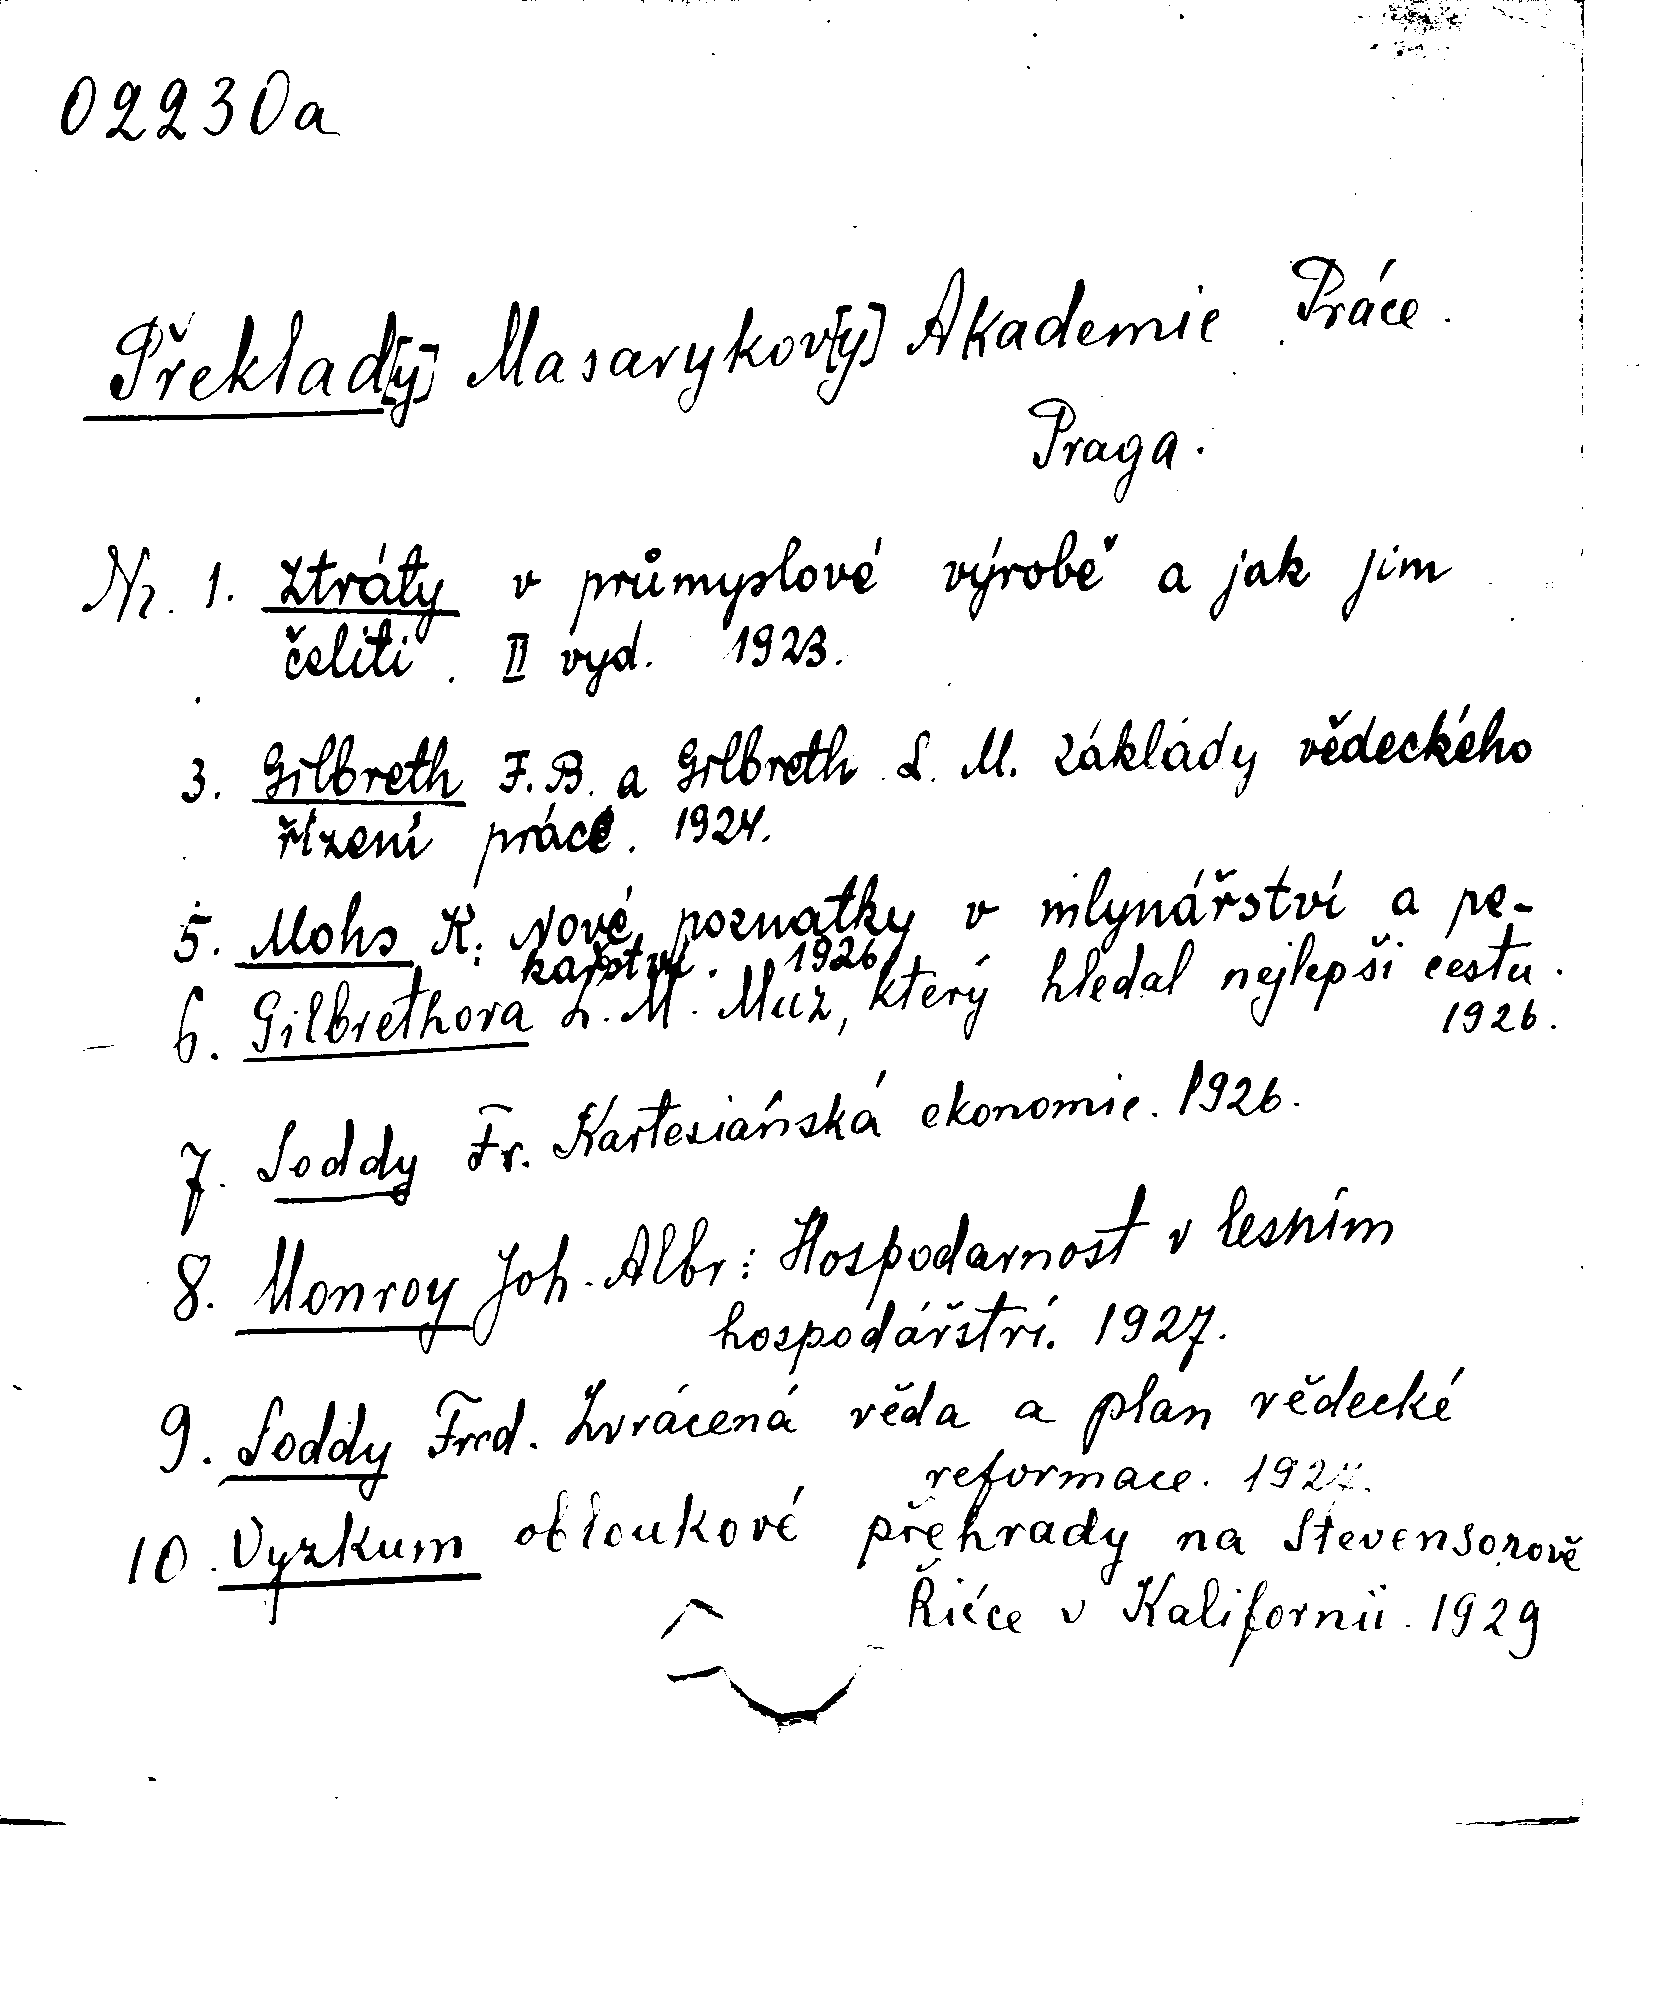 02230a
Překlad[y] Masarykov[y] Akademie Práce.
Praga.
Nr. 1. Ztráty v průmyslové výrobě a jak jim
čeliti. II vyd. 1923.
3. Gilbreth F. B. a Gilbreth L. M. Základy vědeckého
řízení práce. 1924.
5. Mohs K: Nové poznatky v mlynářství a pe-
kařství. 1926
6. Gilbrethora L. M. Muz, který hledal nejlepši cestu.
1926.
7. Soddy Fr. Kartesiańská ekonomie. 1926.
8. Monroy Joh. Albr: Hospodarnost v lesním
hospodářstrí. 1927.
9. Soddy Fred. Zvrácená věda a plan vědecké
reformace. 1927.
10. Vyzkum obloukové přehrady na Stevensonově
Řiéce v Kalifornii. 1929